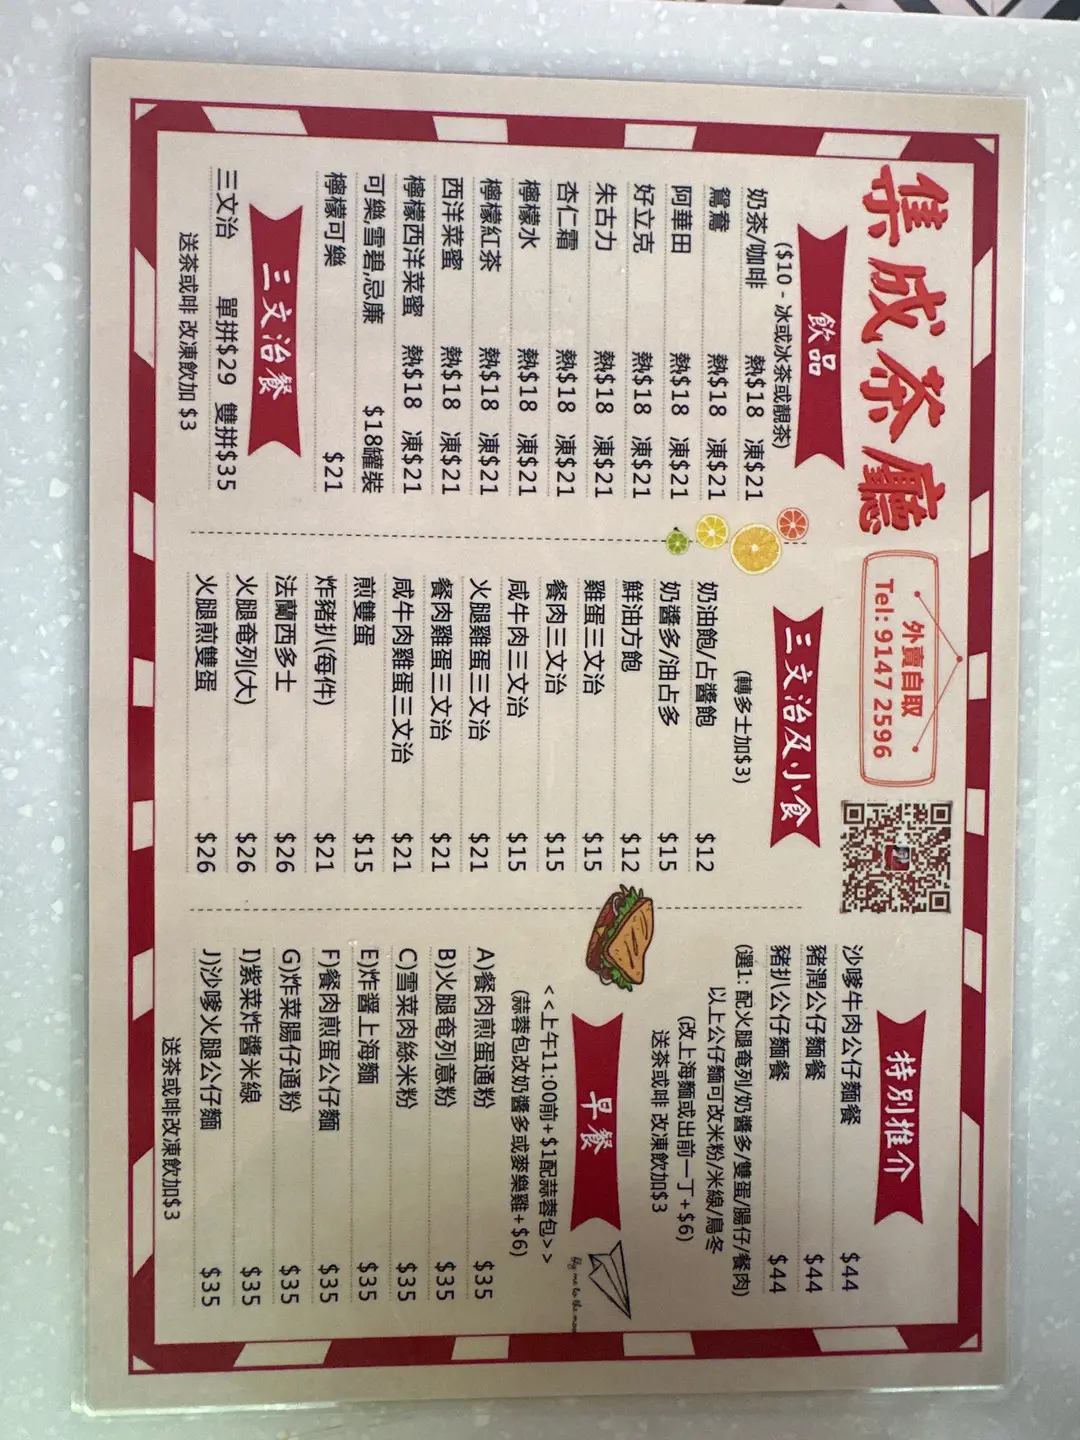 集成茶廳
外賣自取
Tel: 9147 2596
飲品
($10 - 冰或冰茶或靚茶)
奶茶/咖啡 熱$18 凍$21
鴛鴦 熱$18 凍$21
阿華田 熱$18 凍$21
好立克 熱$18 凍$21
朱古力 熱$18 凍$21
杏仁霜 熱$18 凍$21
檸檬水 熱$18 凍$21
檸檬紅茶 熱$18 凍$21
西洋菜蜜 熱$18 凍$21
檸檬西洋菜蜜 熱$18 凍$21
可樂,雪碧,忌廉 $18罐裝
檸檬可樂 $21
三文治餐
三文治 單拼$29 雙拼$35
送茶或啡 改凍飲加 $3
三文治及小食
(轉多士加$3)
奶油飽/占醬飽 $12
奶醬多/油占多 $15
鮮油方飽 $12
雞蛋三文治 $15
餐肉三文治 $15
咸牛肉三文治 $15
火腿雞蛋三文治 $21
餐肉雞蛋三文治 $21
咸牛肉雞蛋三文治 $21
煎雙蛋 $15
炸豬扒(每件) $21
法蘭西多士 $26
火腿奄列(大) $26
火腿煎雙蛋 $26
特別推介
沙嗲牛肉公仔麵餐 $44
豬潤公仔麵餐 $44
豬扒公仔麵餐 $44
(選1: 配火腿奄列/奶醬多/雙蛋/腸仔/餐肉)
以上公仔麵可改米粉/米線/烏冬
(改上海麵或出前一丁+$6)
送茶或啡 改凍飲加$3
早餐
<<上午11:00前+$1配蒜蓉包>>
(蒜蓉包改奶醬多或麥樂雞+$6)
A)餐肉煎蛋通粉 $35
B)火腿奄列意粉 $35
C)雪菜肉絲米粉 $35
E)炸醬上海麵 $35
F)餐肉煎蛋公仔麵 $35
G)炸菜腸仔通粉 $35
I)紫菜炸醬米線 $35
J)沙嗲火腿公仔麵 $35
送茶或啡改凍飲加$3
fly me to the moon